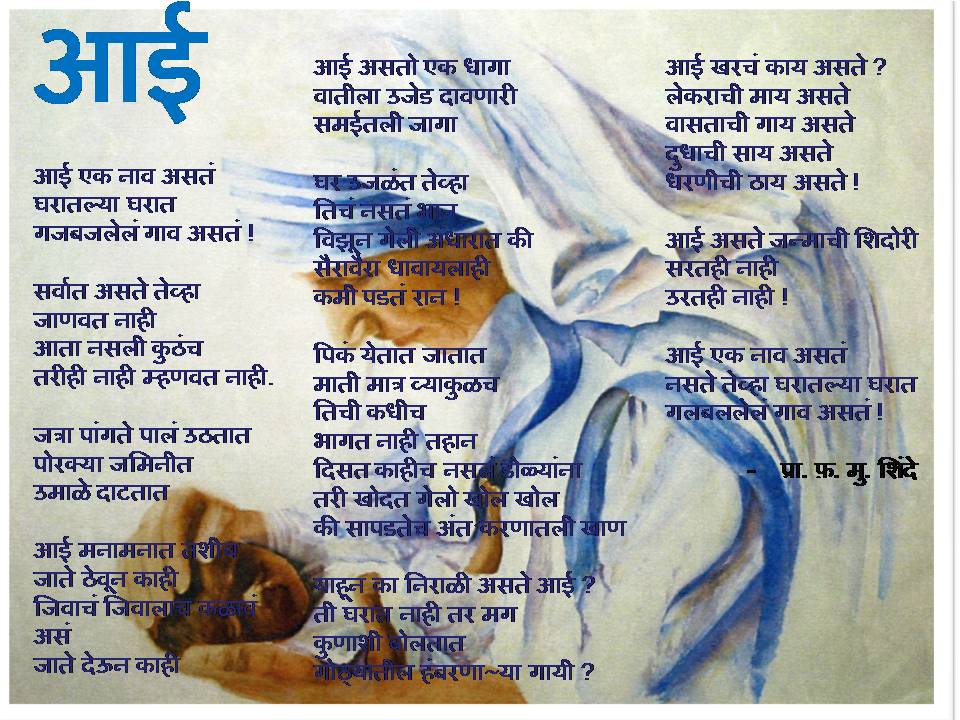 आई
आई एक नाव असतं
घरातल्या घरात
गजबजलेलं गाव असतं !
सर्वात असते तेव्हा
जाणवत नाही
आता नसली कुठंच
तरीही नाही म्हणवत नाही.
जत्रा पांगते पालं उठतात
पोरक्या जमिनीत
उमाळे दाटतात
आई मनामनात तशीच
जाते ठेवून काही
जिवाचं जिवालाच कळावं
असं
जाते देऊन काही
आई असतो एक धागा
वातीला उजेड दावणारी
समईतली जागा
घर उजळंत तेव्हा
तिचं नसतं भान
विझून गेली अंधारात की
सैरावैरा धावायलाही
कमी पडतं रान !
पिकं येतात जातात
माती मात्र व्याकुळच
तिची कधीच
भागत नाही तहान
दिसत काहीच नसतं डोळ्यांना
तरी खोदत गेलो खोल खोल
की सापडतेच अंत:करणातली खाण
याहून का निराळी असते आई ?
ती घरात नाही तर मग
कुणाशी बोलतात
गोठ्यातील हंबरणा~या गायी ?
आई खरचं काय असते ?
लेकराची माय असते
वासताची गाय असते
दुधाची साय असते
धरणीची ठाय असते !
आई असते जन्माची शिदोरी
सरतही नाही
उरतही नाही !
आई एक नाव असतं
नसते तेव्हा घरातल्या घरात
गलबललेलं गाव असतं !
- प्रा. फ़. मु. शिंदे